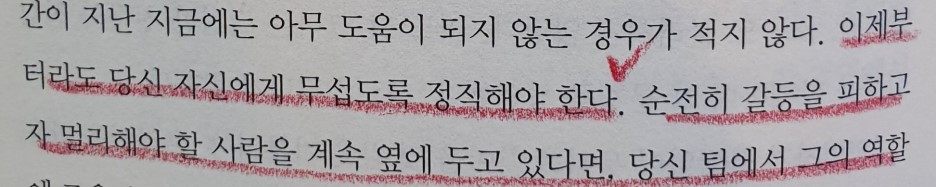 간이 지난 지금에는 아무 도움이 되지 않는 경우가 적지 않다. 이제부
터라도 당신 자신에게 무섭도록 정직해야 한다. 순전히 갈등을 피하고
자 멀리해야 할 사람을 계속 옆에 두고 있다면, 당신 팀에서 그의 역할